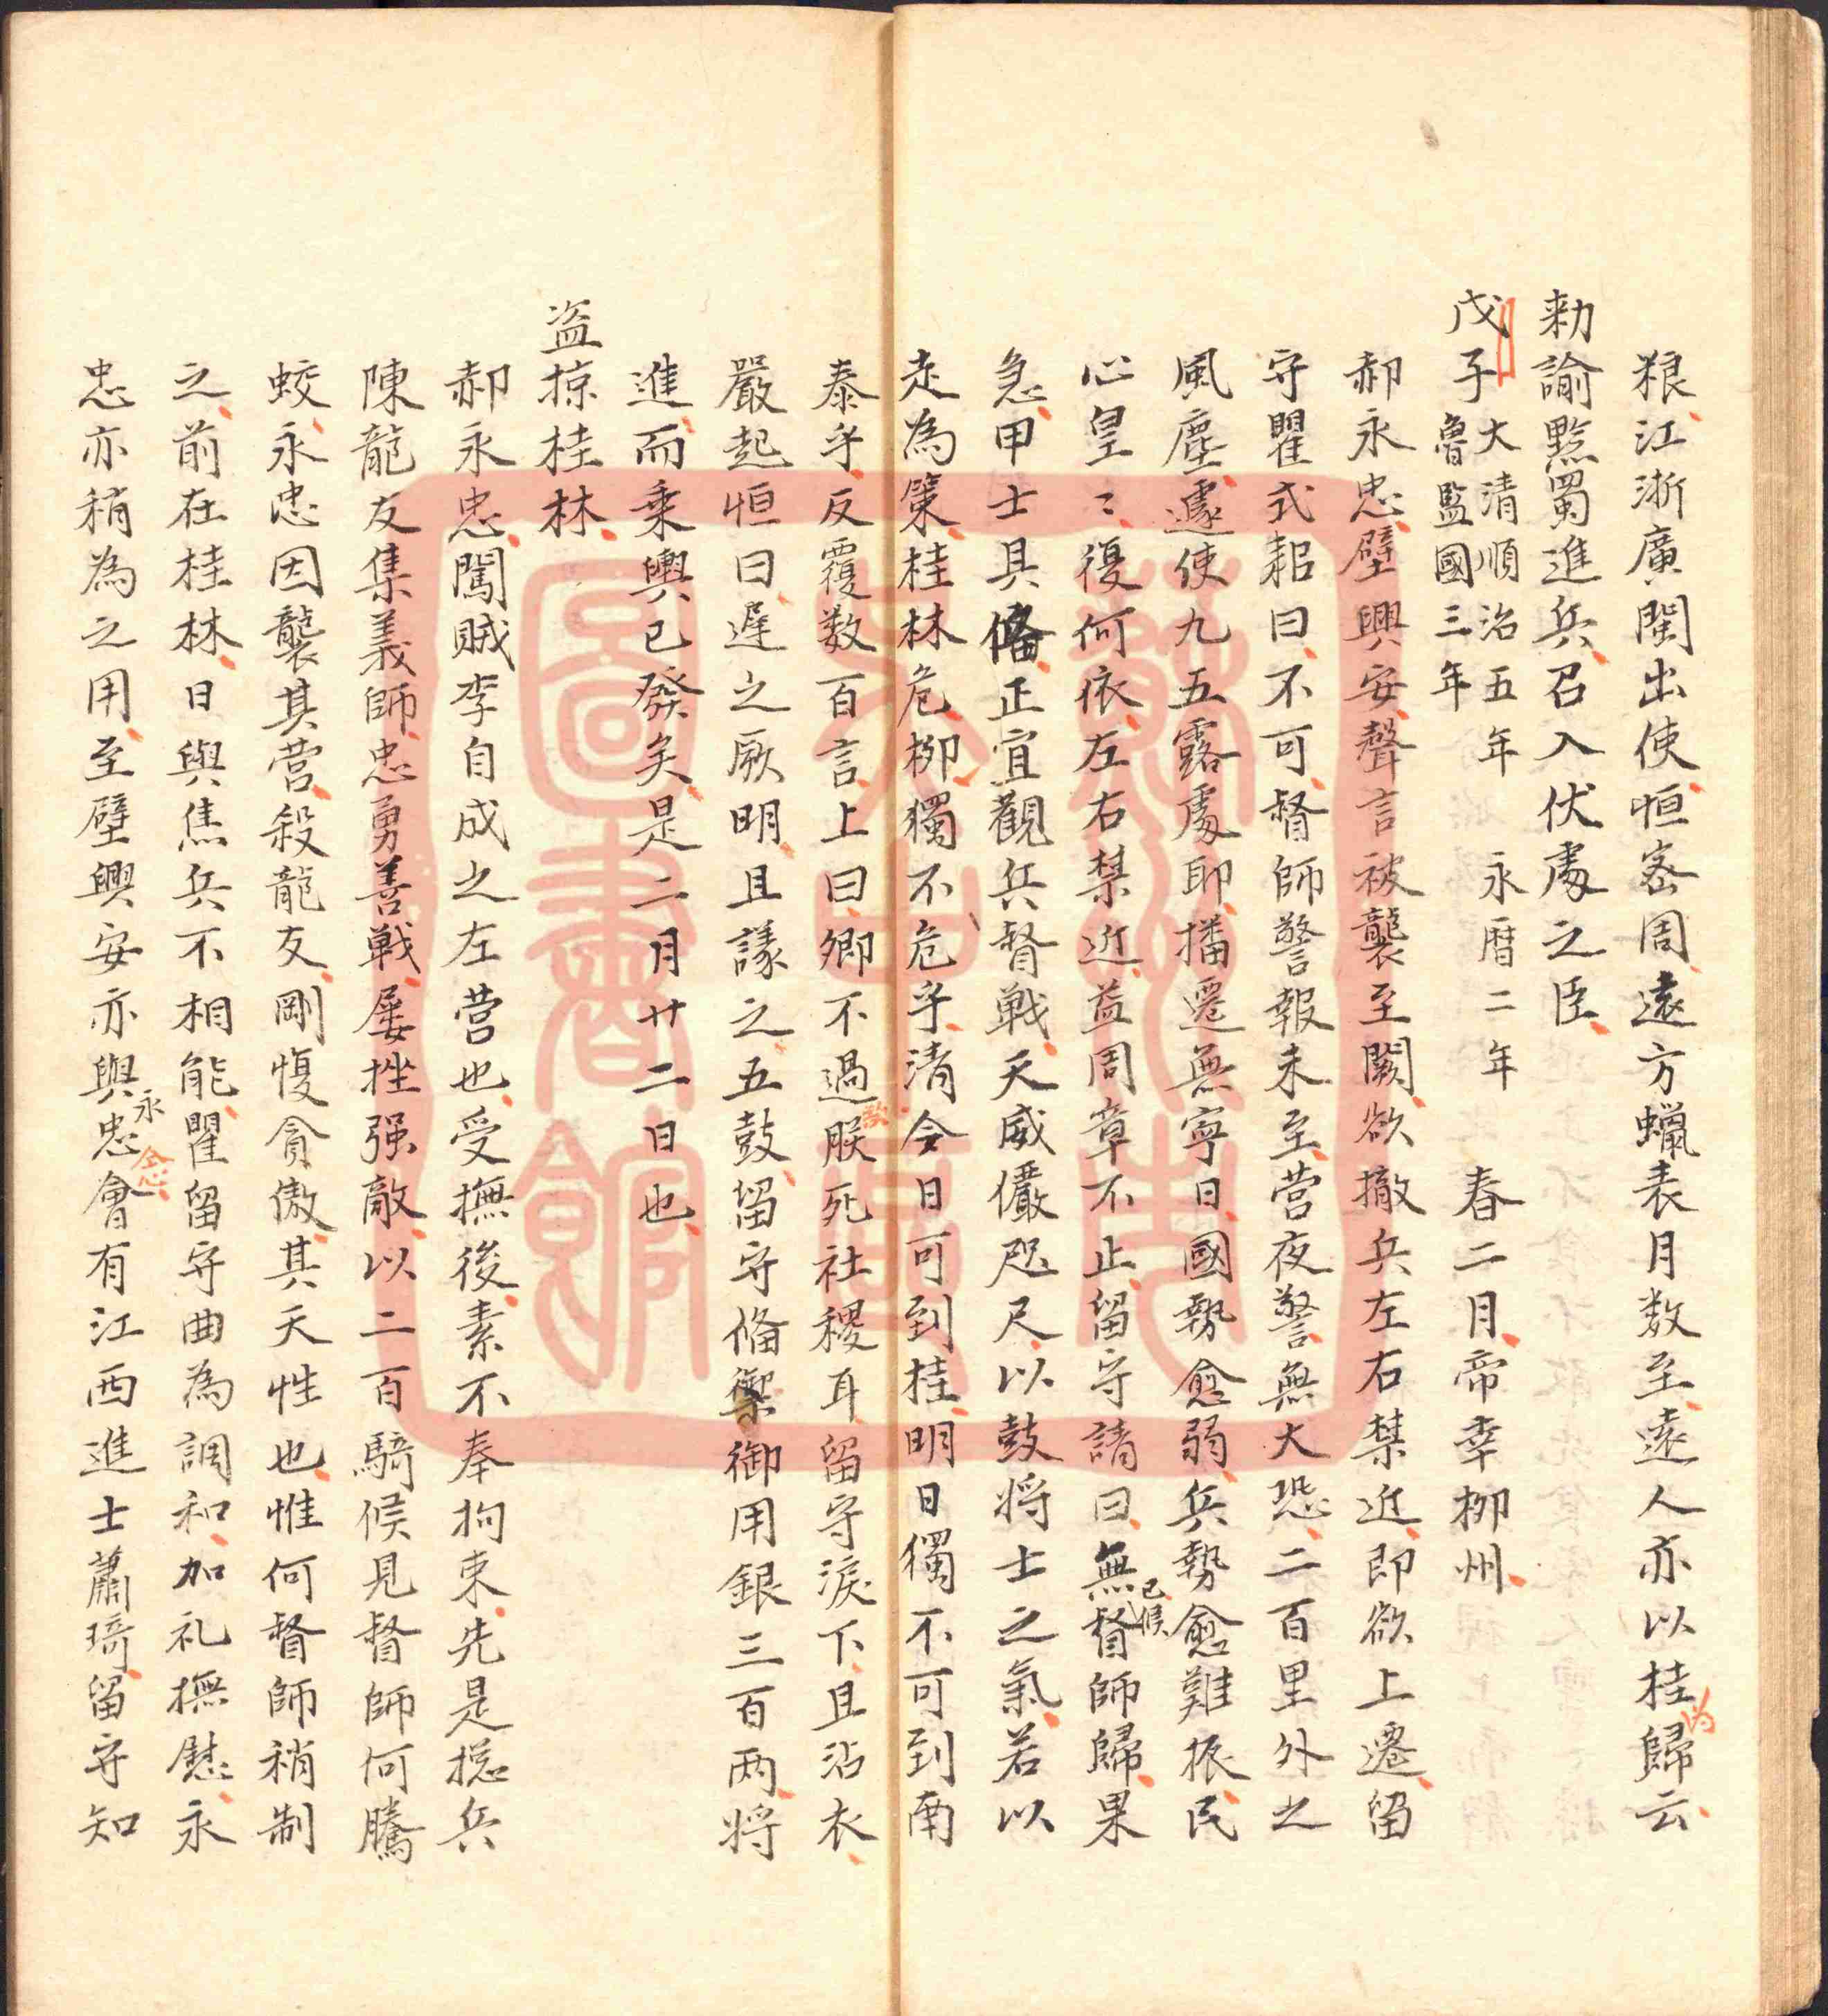 粮江浙廣閩出使恒密周遠方蠟表月数至遠人亦以桂為歸云
勅諭黔蜀進兵召入伏處之臣
戊子大清順治五年 永曆二年 春二月帝幸栁州
魯監國三年
郝永忠壁興安聲言被襲至闕欲撤兵左右禁近即欲上遷留
守瞿式耜曰不可督師警報未至营夜警無大恐二百里外之
風塵遽使九五露處耶播遷無寧日國勢愈弱兵勢愈難振民
心皇〻復何依左右禁近益周章不止留守請曰無已候督師歸果
急甲士具偹正宜觀兵督戰天威儼咫尺以鼓将士之氣若以
走為策桂林危栁獨不危乎清今日可到桂明日獨不可到南
泰乎反覆数百言上曰卿不過欲朕死社稷耳留守淚下且沾衣
嚴起恒曰遲之厥明且議之五鼓留守偹禦御用銀三百两将
進而乗輿已發矣是二月廿二日也
盗掠桂林
郝永忠闖賊李自成之左营也受撫後素不奉拘束先是搃兵
陳龍友集義師忠勇善戰屡挫强敵以二百騎候見督師何騰
蛟永忠因襲其营殺龍友剛愎貪傲其天性也惟何督師稍制
之前在桂林日與焦兵不相能瞿留守曲為調和加礼撫慰永
忠亦稍為之用至壁興安亦與永忠念會有江西進士蕭琦留守知
圖書館